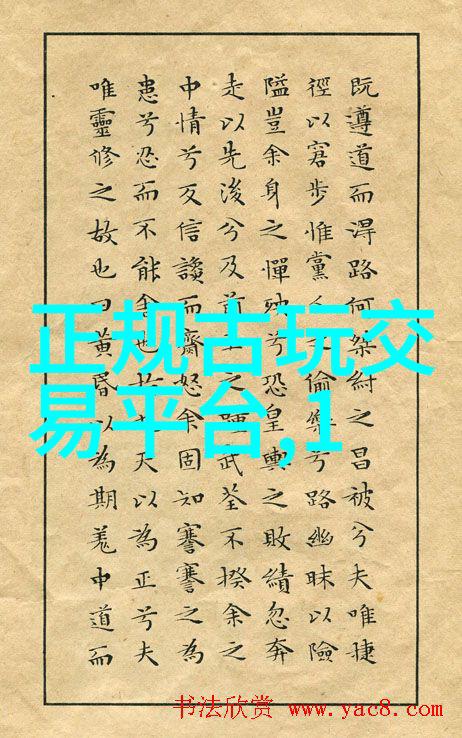 既遵道而淂路何桀紂之昌被兮夫唯捷
徑以窘步惟黨人之偷樂兮路幽昧以險
隘豈余身之憚殃兮恐皇輿之敗績忽奔
走以先後兮及前王之踵武荃不揆余之
中情兮反信讒而齋怒余固知謇謇之為
患兮忍而不能舍也指九天以為正兮夫
唯靈修之故也曰黃昏以為期羌中道而
正规古玩交
易平台,1
书法欣赏 www.yac8.com